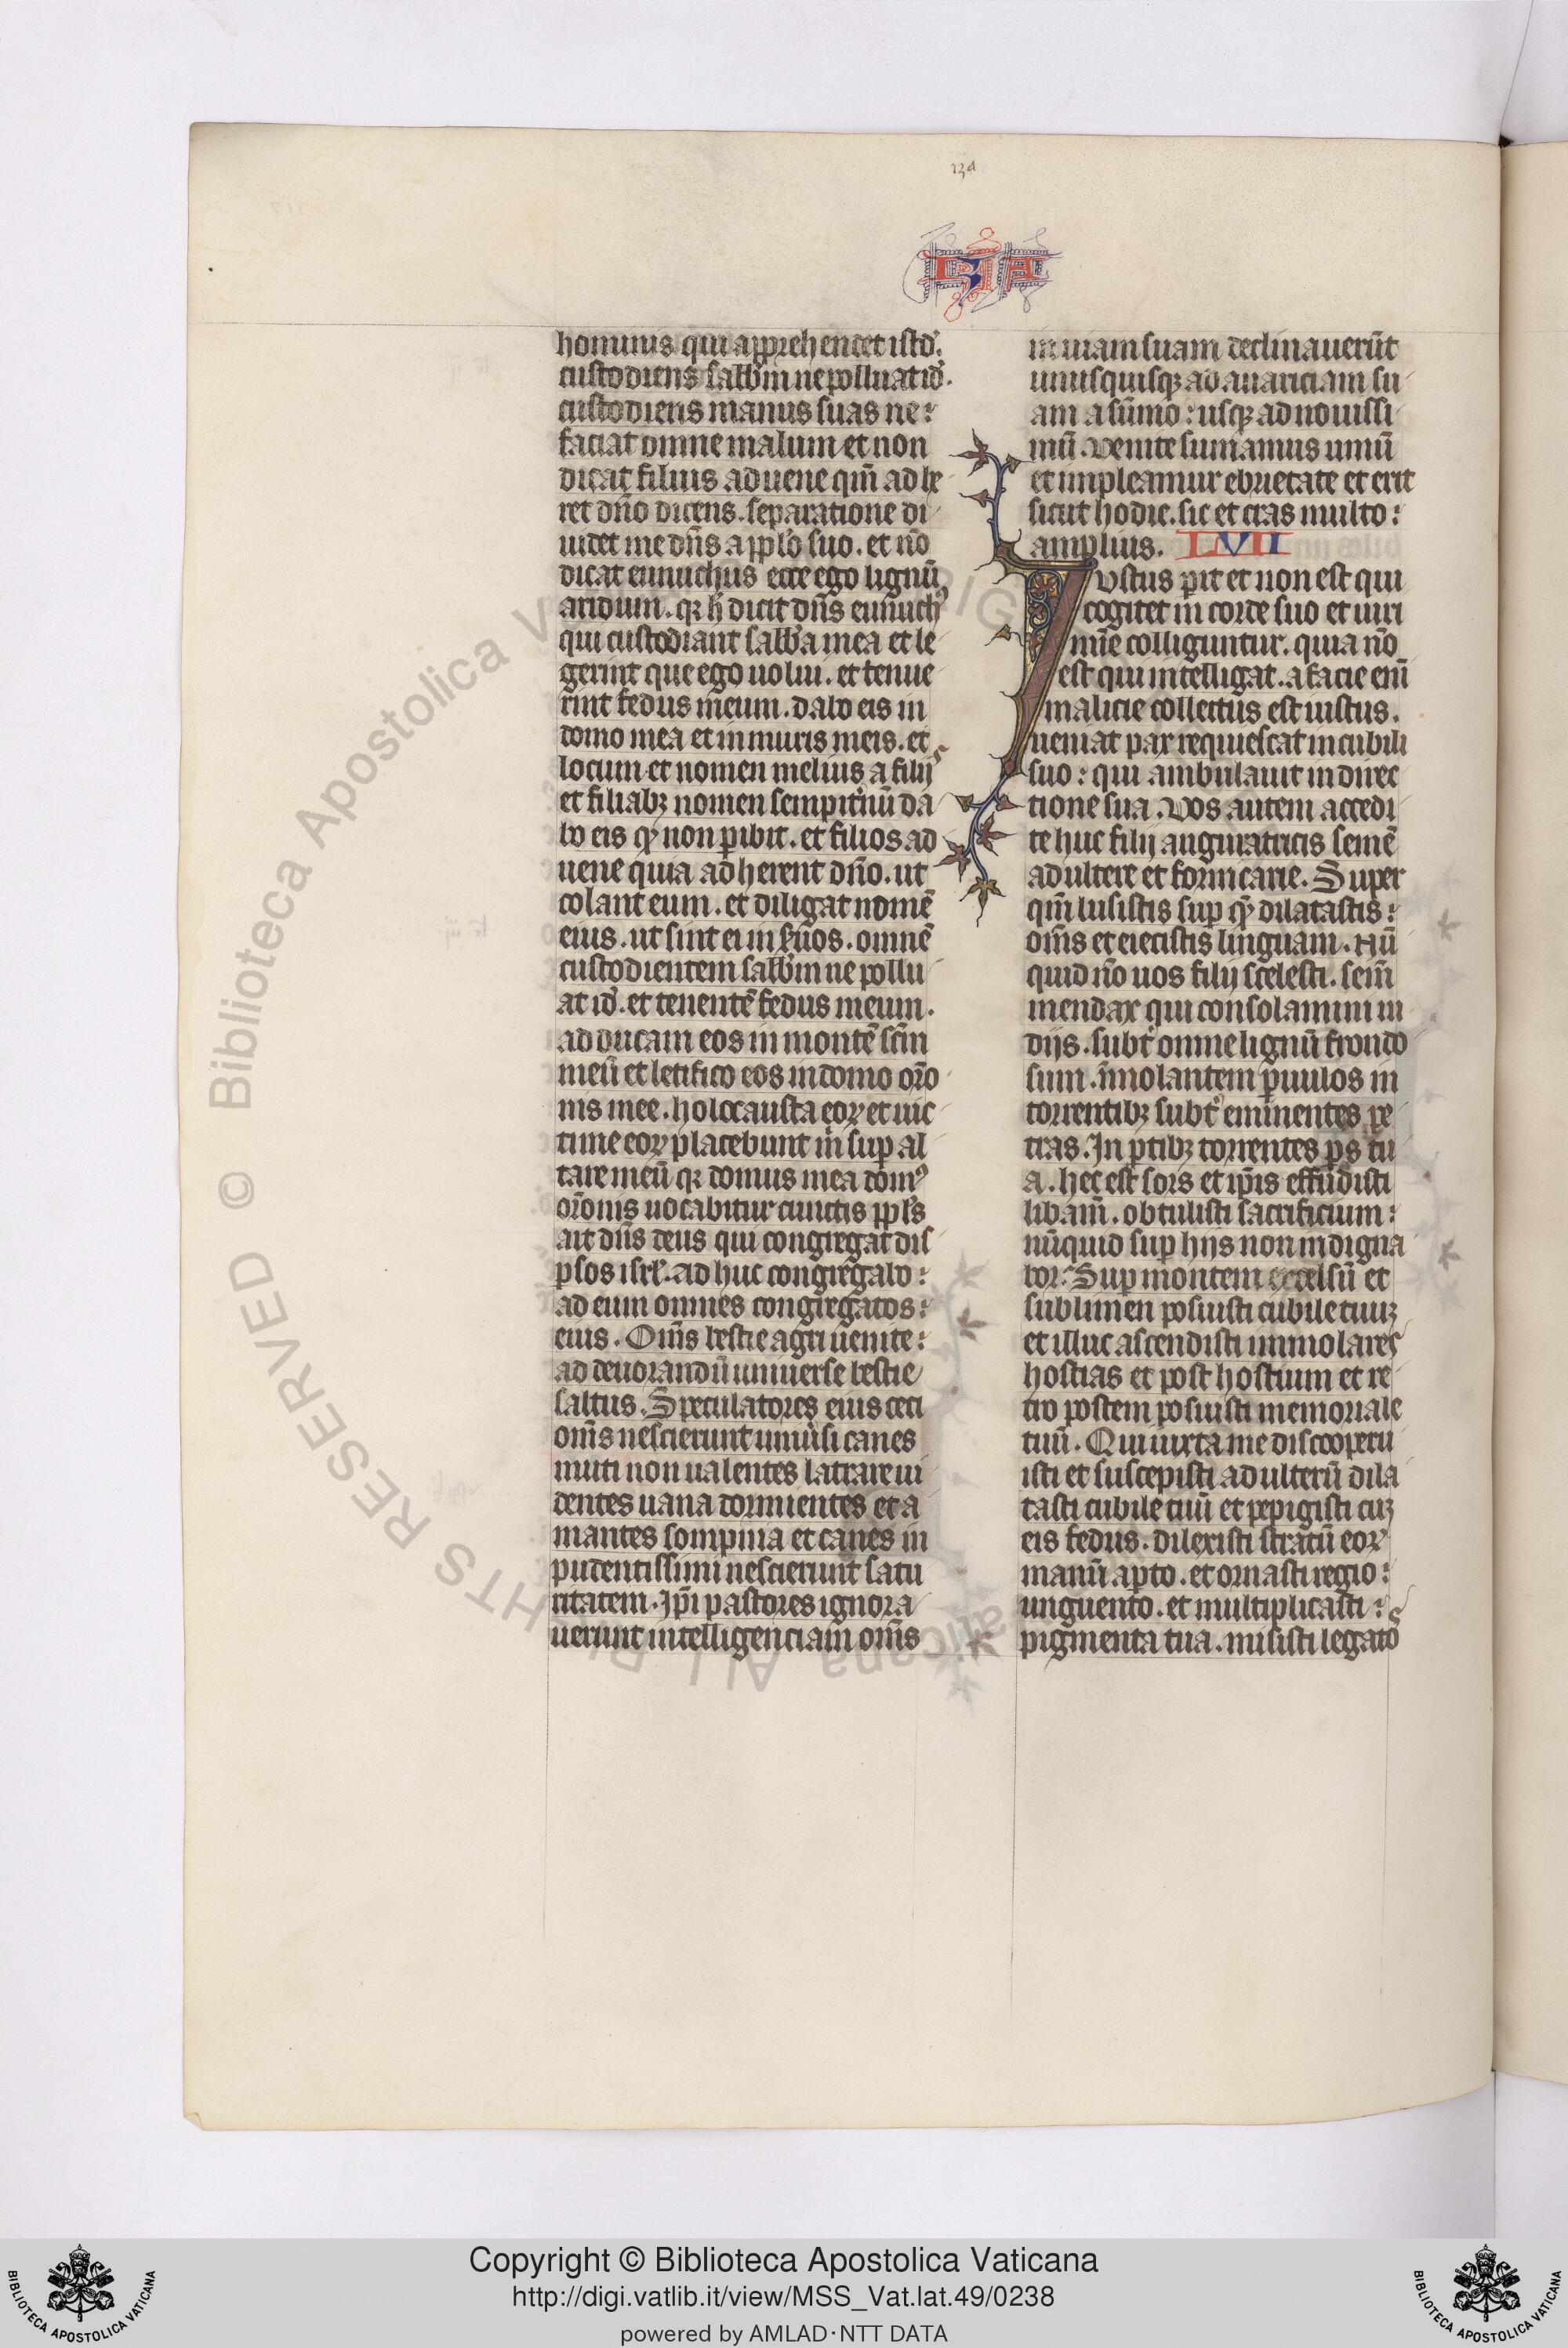 134
hominis qui apprehendet istd̛.
custodiens sabb̃m ne polluat id̛.
custodiens manus suas ne:
faciat omne malum et non
dicat filius aduene qm̃ adhe
ret dño dicens. separatione di
uidet me dñs a pplơ suo. et nõ
dicat eunuchus ecce ego lignũ
aridum. qꝛ h̛ dicit dñs eunuchꝰ
qui custodiant sabb̃a mea et le
gerint que ego uolui. et tenue
rint fedus meum. dabo eis in
domo mea et in muris meis. et
locum et nomen melius a filijs
et filiabꝫ nomen sempit̛nũ da
bo eis qđ non ꝑibit. et filios ad
uene quia adherent dño. ut
colant eum. et diligat nomẽ
eius. ut sint ei in s̛uos. omnẽ
custodientem sabb̃m ne pollu
at id̛. et tenentẽ fedus meum.
adducam eos in montẽ scm̃
meũ et letifico eos in domo orõ
nis mee. holocausta eoꝝ et uic
time eoꝝ placebunt m̛ suꝑ al
tare meũ qꝛ domus mea domꝰ
orõnis uocabitur cunctis ppl̛s
ait dñs deus qui congregat dis
ꝑsos isrl̛. adhuc congregabo:
ad eum omnes congregatos:
eius. Om̃s bestie agri uenite:
ad deuorandũ uniuerse bestie
saltus. Speculatores eius ceci
om̃s nescierunt uniũsi canes
muti non ualentes latrare ui
dentes uana dormientes et a
mantes sompnia et canes in
pudentissimi nescierunt satu
ritatem. Ip̃i pastores ignora
uerunt intelligenciam om̃s
in uiam suam declinauerũt
unusquisqꝫ ad auariciam su
am a sũmo: usqꝫ ad nouissi
mũ. Venite sumamus uinũ
et impleamur ebrietate et erit
sicut hodie. sic et cras multo:
amplius. LVII
Iustus ꝑit et non est qui
cogitet in corde suo et uiri
mĩe colliguntur. quia nõ
est qui intelligat. a facie enĩ
malicie collectus est iustus.
ueniat pax requiescat in cubili
suo: qui ambulauit in direc
tione sua. Vos autem accedi
te huc filij auguratricis semẽ
adultere et fornicarie. Super
qm̃ lusistis suꝑ qm̃ dilatastis:
om̃s et eiecistis linguam. Nũ
quid nõ uos filij scelesti. sem̃
mendax qui consolamini in
dijs. subt̛ omne lignũ frondo
sum. ĩmolantem ꝑuulos in
torrentibꝫ subt̛ eminentes pe
tras. In ꝑtibꝫ torrentes ꝑs tu
a. hec est sors et ip̃is effudisti
libam̃. obtulisti sacrificium:
nũquid suꝑ hijs non indigna
bor: Suꝑ montem excelsũ et
sublimen posuisti cubile tuuꝫ
et illuc ascendisti immolares
hostias et post hostium et re
tro postem posuisti memoriale
tuũ. Qui iuxta me discooperu
isti et suscepisti adulterũ dila
tasti cubile tuũ et pepigisti cuꝫ
eis fedus. dilexisti stratũ eoꝝ
manũ aꝑto. et ornasti regio:
unguento. et multiplicasti:
pigmenta tua. misisti legatos
© Biblioteca Apostolica Vaticana
Copyright © Biblioteca Apostolica Vaticana
http://digi.vatlib.it/view/MSS_Vat.lat.49/0238
powered by AMLAD·NTT DATA
BIBLIOTECA APOSTOLICA VATICANA
BIBLIOTECA APOSTOLICA VATICANA